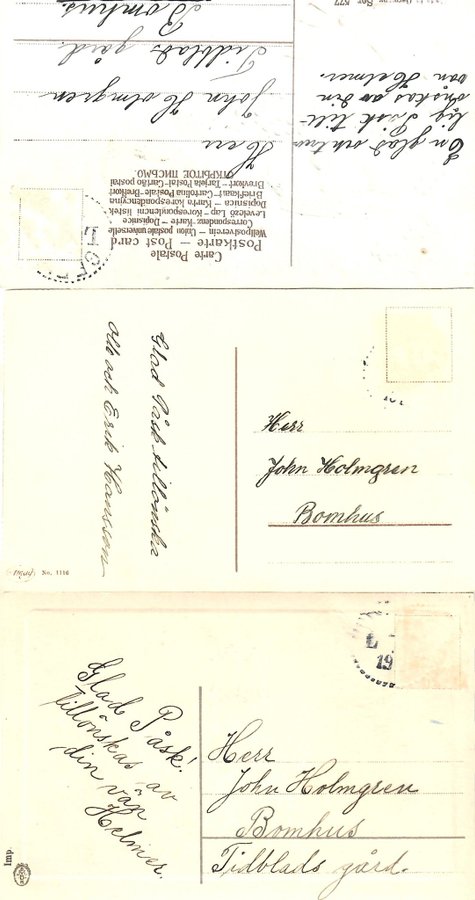 Carte Postale
Postkarte — Post card
Weltpostverein — Union postale universelle
Correspondenz-Karte — Dopisnice
Levelező-Lap — Korespondencni listek
Dopisnica — Karta korespondencyjna
Briefkaart — Cartolina Postale — Brefkort
Brevkort — Tarjeta Postal — Cartão postal
ОТКРЫТОЕ ПИСЬМО
Herr
John Holmgren
Tidblads gård.
Bomhus
En glad och
lig Påsk till-
önskas av din
vän Helmer.
Glad Påsk tillönska
och Erik Hansson
Herr
John Holmgren
Bomhus
No. 1116
L
19
Glad Påsk!
Tillönskas av
din vän
Helmer.
Herr
John Holmgren
Bomhus
Tidblads gård.
Imp.